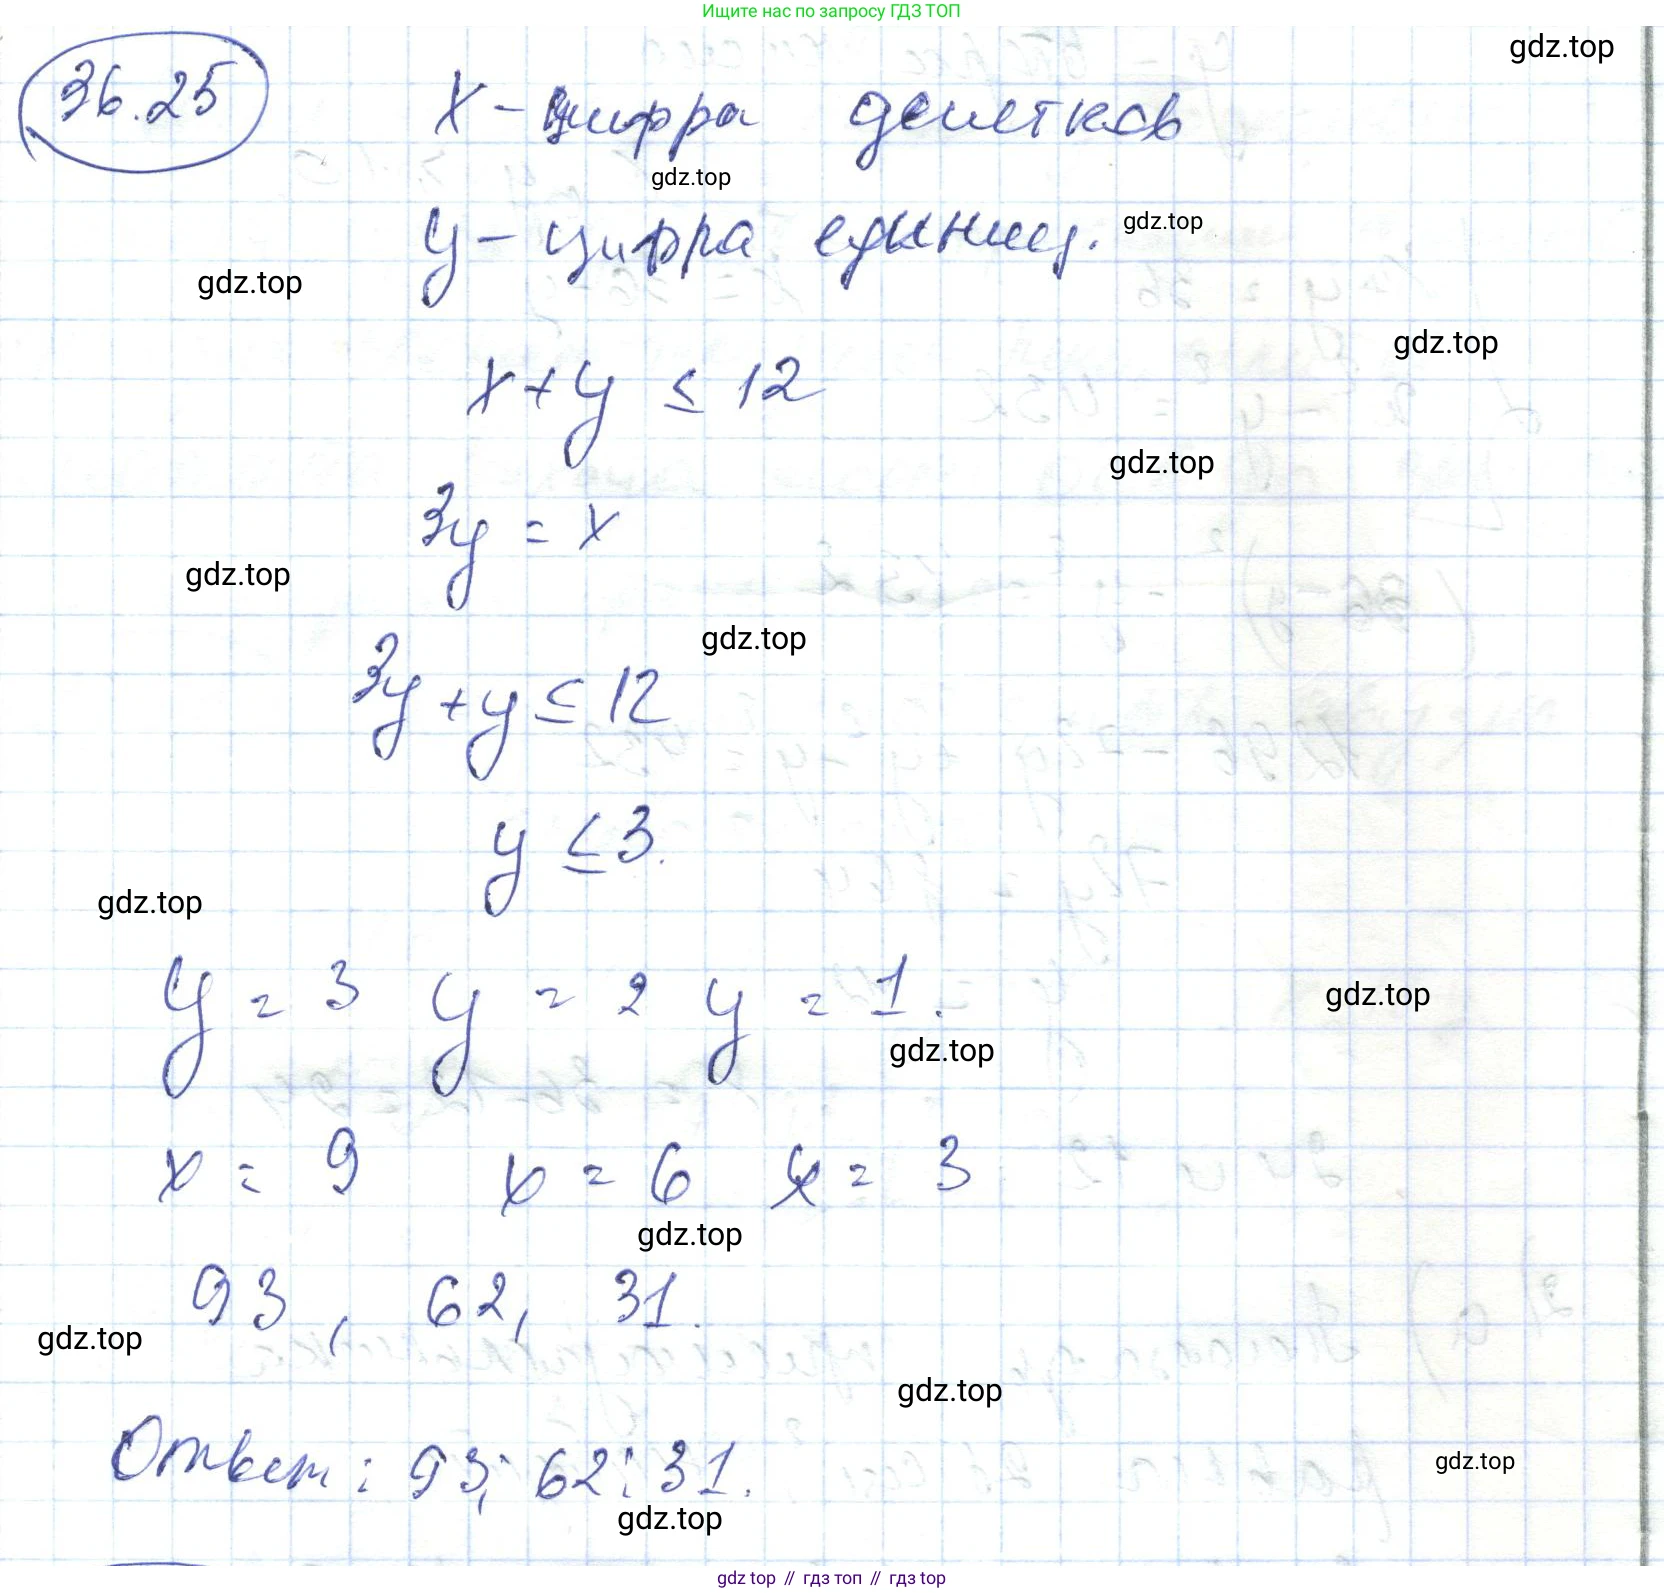 Ищите нас по запросу ГДЗ ТОП
gdz.top
36.25
x - цифра десятков
gdz.top
y - цифра единиц.
gdz.top
gdz.top
gdz.top
x + y ≤ 12
gdz.top
3y = x
gdz.top
gdz.top
3y + y ≤ 12
y ≤ 3.
gdz.top
y = 3 y = 2 y = 1.
gdz.top
gdz.top
x = 9 x = 6 x = 3
gdz.top
93, 62, 31.
gdz.top
gdz.top
Ответ: 93; 62; 31.
gdz.top
gdz.top
gdz top // гдз топ // гдз top